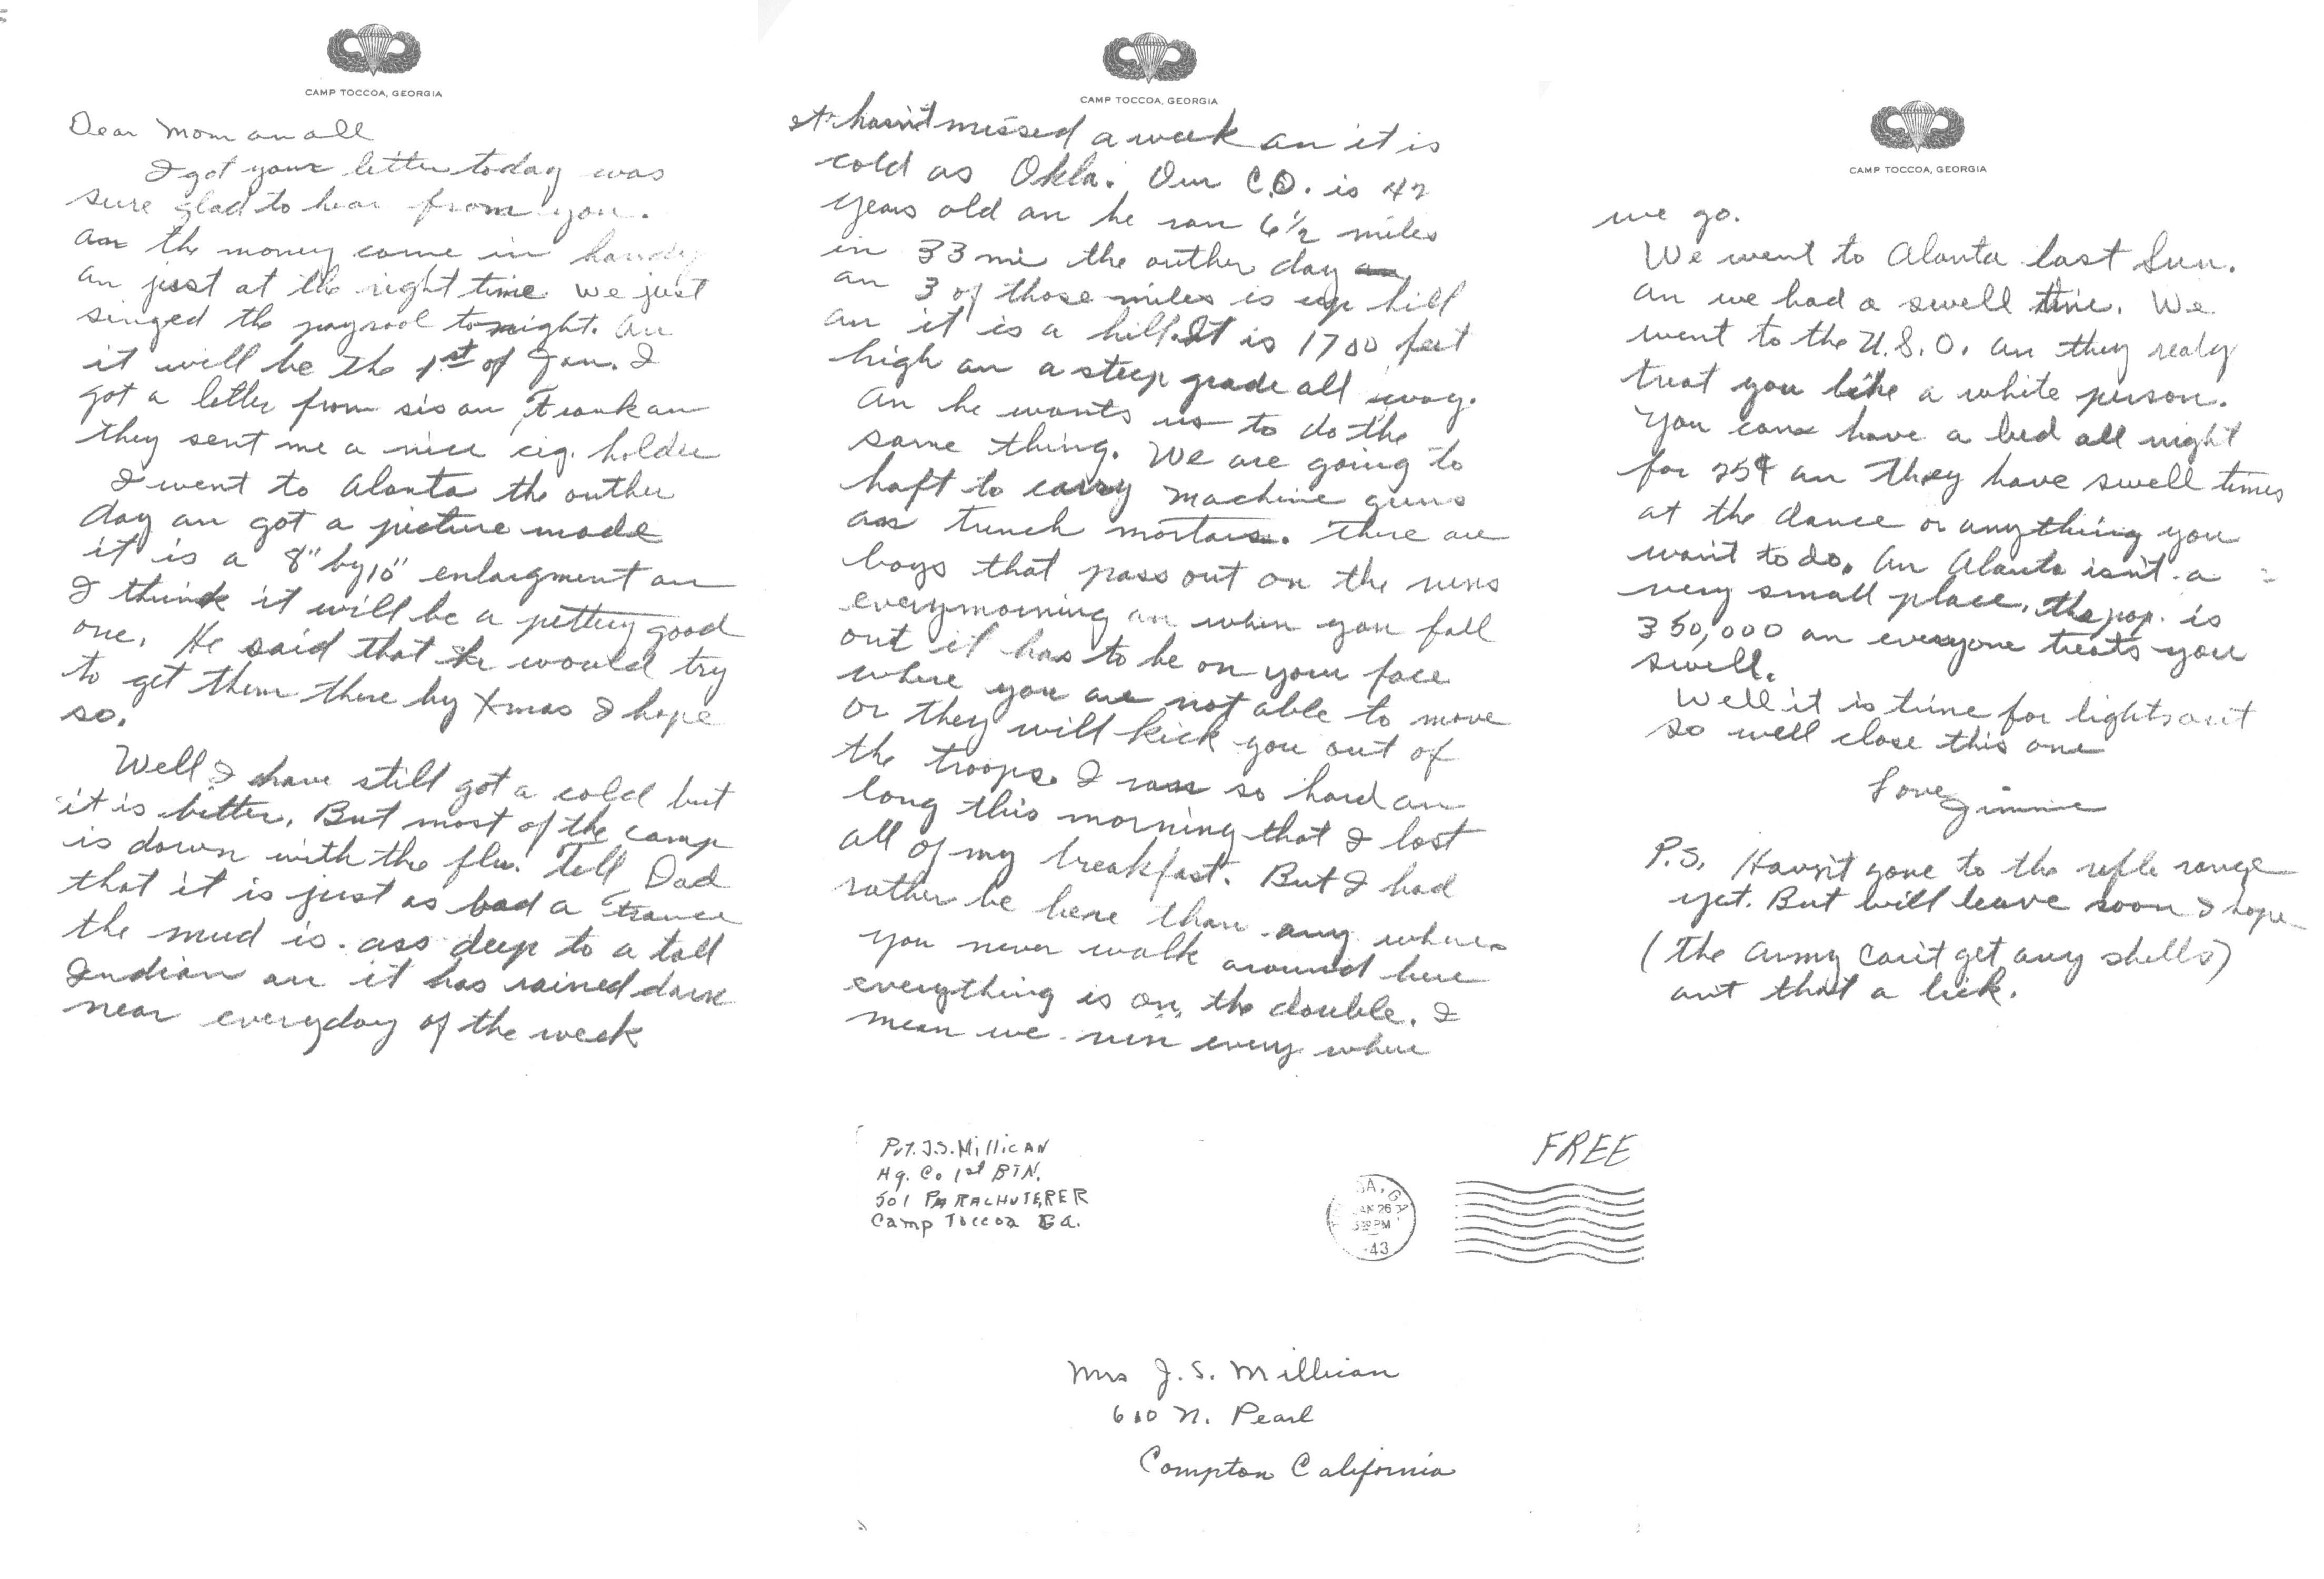 CAMP TOCCOA, GEORGIA
Dear Mom an all
I got your letter today was
sure glad to hear from you.
an the money come in handy
an just at the right time we just
singed the payrool tonight. an
it will be the 1st of Jan. I
got a letter from sis an Frank an
they sent me a nice cig. holder
I went to Alanta the outher
day an got a picture made
it is a 8" by 10" enlargment an
I think it will be a pettey good
one. He said that he would try
to get them there by Xmas I hope
so.
Well I have still got a cold but
it is better. But most of the camp
is down with the flu. Tell Dad
that it is just as bad a France
the mud is ass deep to a tall
Indian an it has rained darn
near everyday of the week
CAMP TOCCOA, GEORGIA
It hasn't missed a week an it is
cold as Okla. Our C.O. is 42
years old an he ran 6 1/2 miles
in 33 mi the outher day
an 3 of those miles is up hill
an it is a hill. It is 1700 feet
high an a steep grade all way.
An he wants us to do the
same thing. We are going to
haft to carry machine guns
an trench mortars. There are
boys that pass out on the runs
everymorning an when you fall
out it has to be on your face
where you are not able to move
or they will kick you out of
the troops. I ran so hard an
long this morning that I lost
all of my breakfast. But I had
rather be here than any where
you never walk around here
everything is "on" the double. I
mean we run every where
CAMP TOCCOA, GEORGIA
we go.
We went to Alanta last Sun.
an we had a swell time. We
went to the U.S.O. an they realy
treat you like a white person.
You can have a bed all night
for 25¢ an they have swell times
at the dance or anything you
want to do. An Alanta isn't a
very small place, the pop. is
350,000 an everyone treats you
swell.
Well it is time for lights out
so well close this one
Love Jimmie
P.S. Havn't gone to the rifle range
yet. But will leave soon I hope
(The Army can't get any shells)
ant that a lick.
Pvt. J.S. Millican
Hq. Co 1st BTN.
501 PARACHUTERER
Camp Toccoa Ga.
FREE
JAN 26
PM
43
Mrs J. S. Millican
610 N. Pearl
Compton California